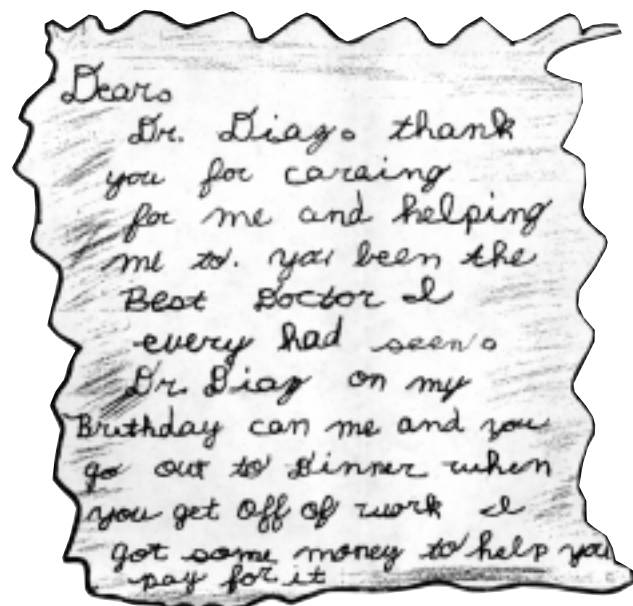 Dear.
Dr. Diaz. thank
you for careing
for me and helping
me to. you been the
Best Doctor I
every had seen.
Dr. Diaz on my
Bruthday can me and you
go out to Dinner when
you get off of work I
got some money to help you
pay for it